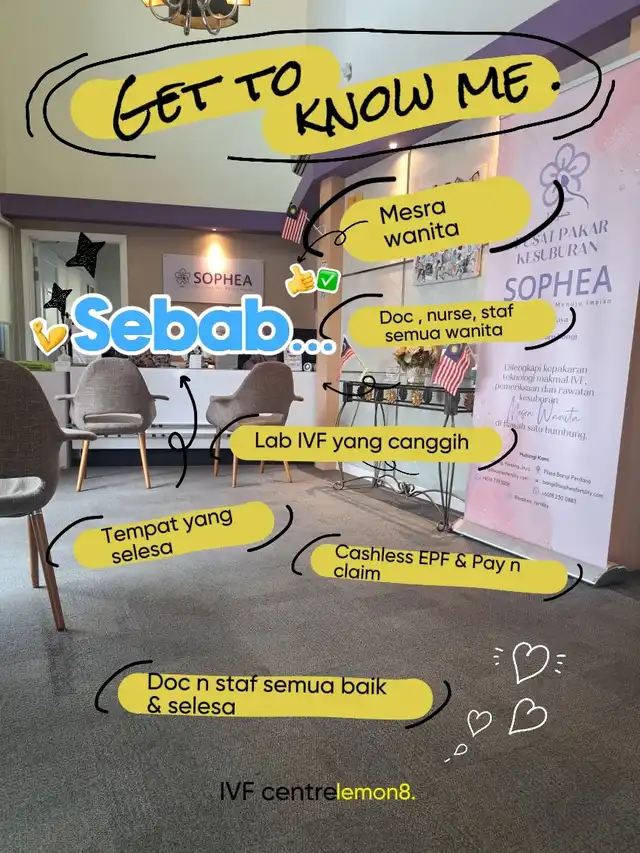 GET TO
KNOW ME.
Mesra
wanita
PUSAT PAKAR
KESUBURAN
SOPHEA
SOPHEA
Sebab...
Doc , nurse, staf
semua wanita
Dilengkapi kepakaran
teknologi makmal IVF,
pemeriksaan dan rawatan
kesuburan
Mesra Wanita
di bawah satu bumbung.
Lab IVF yang canggih
Hubungi Kami
Plaza Bangi Perdana
Tempat yang
selesa
Cashless EPF & Pay n
claim
Doc n staf semua baik
& selesa
IVF centrelemon8.